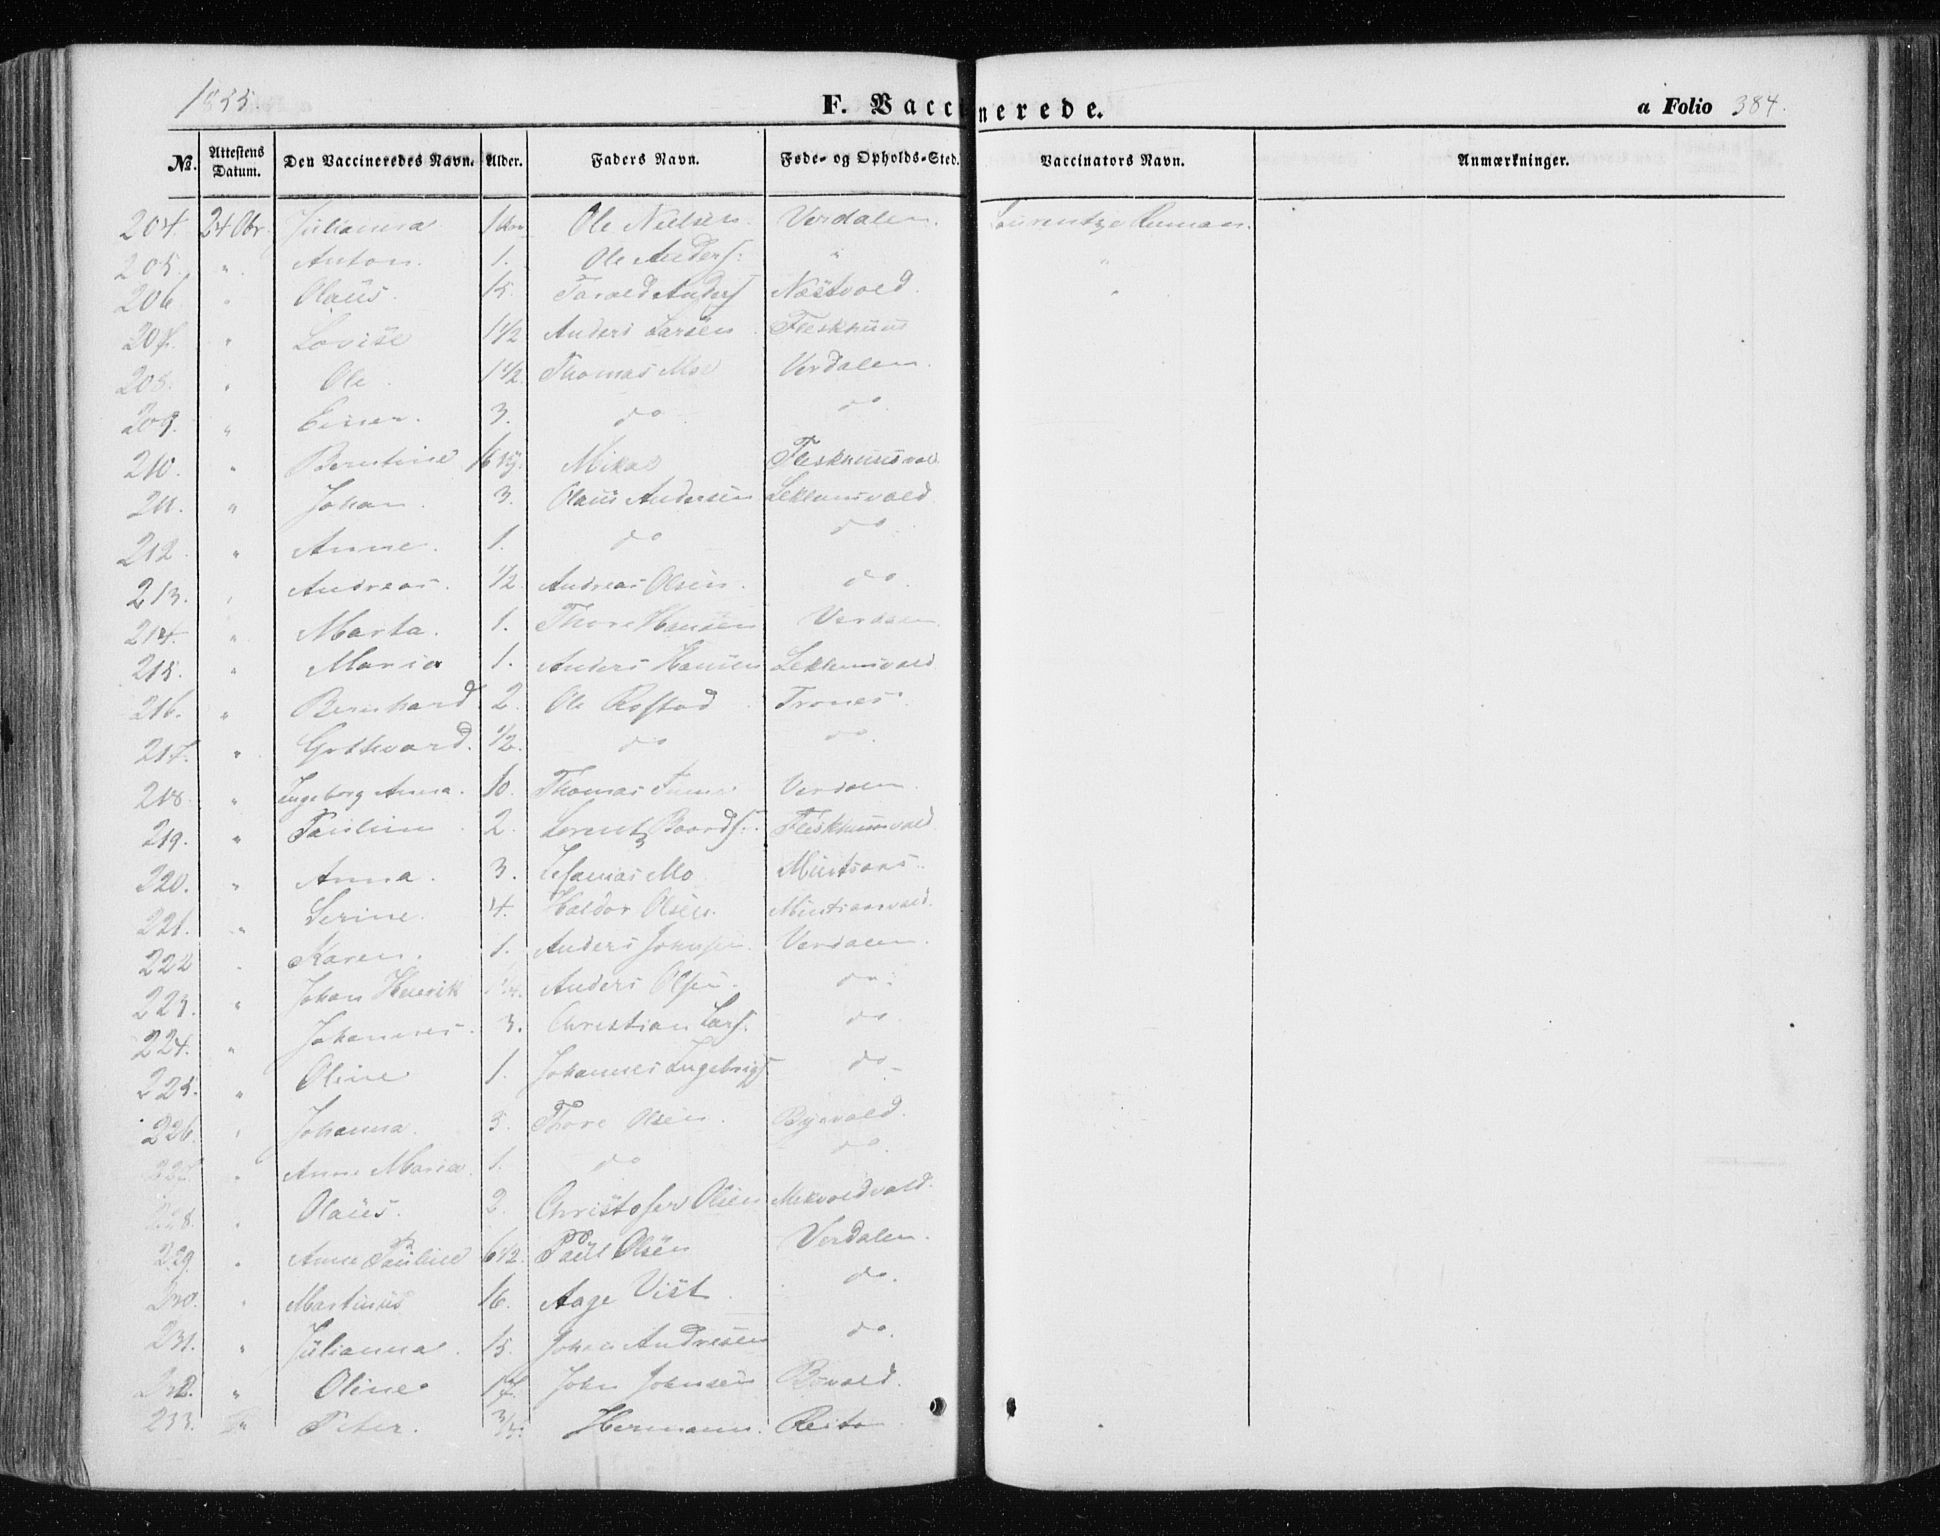 1855. F. Vaccinerede. a Folio 384.
No. Attestens Datum. Den Vaccineredes Navn. Alder. Faders Navn. Føde- og Opholds-Sted. Vaccinators Navn. Anmærkninger.
204. 24 Obr. Julianna 1 Ole Nielsen. Verdalen.
205. " Anton. 1. Ole Anders: "
206 " Olaus. 15. Anders Næstvold.
207. " Lovise 1 1/2 Anders Larsen Fleskhuus
208. " Ole. 1 1/2. Thomas Moe Verdalen.
209. " 3. do do
210. " Berntine Mikal Fleskhuusvald
211. " Johan. 3. Olaus Andersen Leklumsvald
212 " Anne. 1. do do
213. " Andreas. 1/2. Andreas Olsen. do.
214. " Marta. 1. Thore Hansen Verdalen
215. " Maria 1. Anders Hansen Leklumsvald
216. " Bernhard 2. Ole Rostad Trones.
217. " 1/2. do do.
218. " Ingeborg Anna. 10. Thomas Verdalen.
219. " Pauline 2. Lorentz Baards. Fleskhuusvald
220. " Anna. 3. Mo
221. " Serine. 4. Haldor Olsen.
222 " Karen. 1. Anders Johnsen. Verdalen.
223. " Johan Henrik Anders Olsen. do.
224. " Johannes. 3. Christian Lars. do.
225. " Oline 1. Johannes Ingebrigts do
226. " Johanna. 3. Thore Olsen. Byevald.
227. " Anne Maria 1. do do.
228. " Olaus. 2. Christofer Olsen Mikvoldvald.
229 " Anne Pauline 6 1/2. Paul Olsen Verdalen.
230. " Martinus 16. Aage Vist. do.
231. " Julianna. 15. Johan Andresen do.
232. " Oline 17. John Johnsen
233. " Peter. 3/4. Hermann.